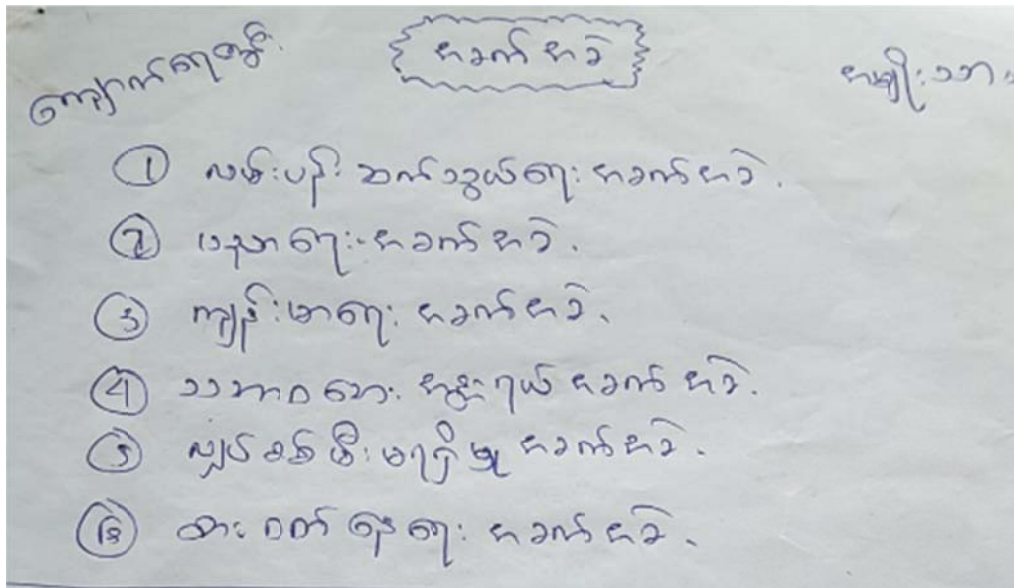 ကျောက်ရေတွင်း
အခက်အခဲ
အမျိုးသား
① လမ်းပန်းဆက်သွယ်ရေး အခက်အခဲ.
② ပညာရေး အခက်အခဲ.
③ ကျန်းမာရေး အခက်အခဲ.
④ သဘာဝဘေး အန္တရယ် အခက်အခဲ.
⑤ လျှပ်စစ်မီး မရှိမှု အခက်အခဲ.
⑥ စားဝတ်နေရေး အခက်အခဲ.